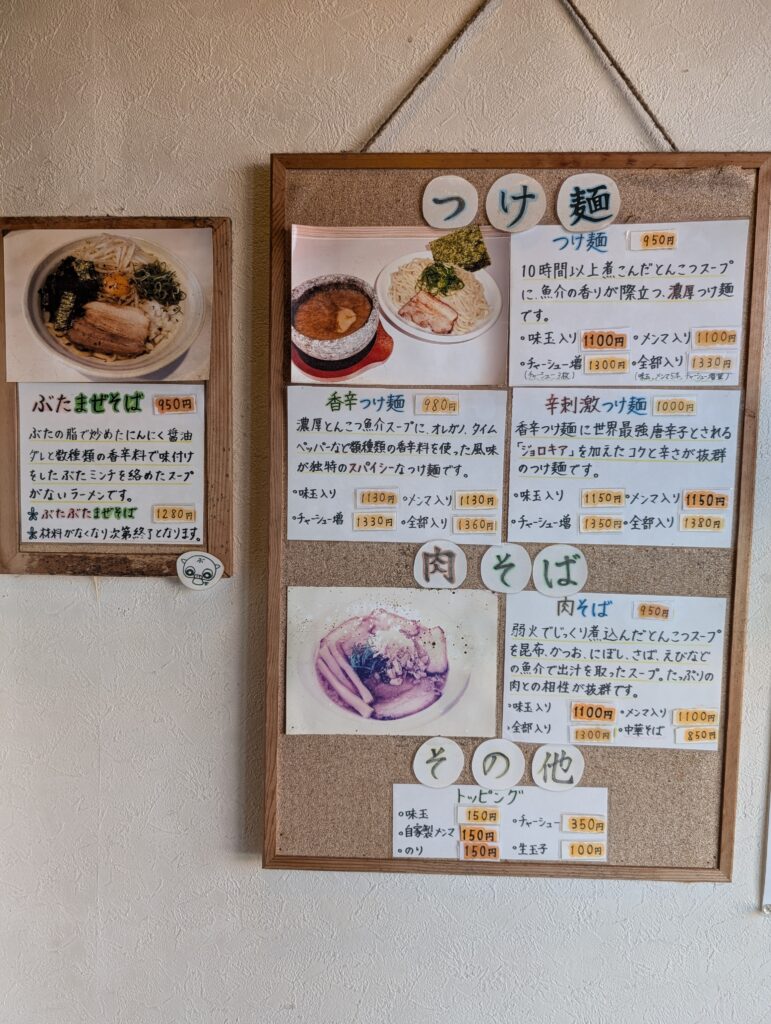 ぶたまぜそば 950円
ぶたの脂で炒めたにんにく醤油
ダレと数種類の香辛料で味付け
をしたぶたミンチを絡めたスープ
がないラーメンです。
ぶたぶたまぜそば 1280円
材料がなくなり次第終了となります。
つけ麺
つけ麺 950円
10時間以上煮こんだとんこつスープ
に、魚介の香りが際立つ、濃厚つけ麺
です。
・味玉入り 1100円 ・メンマ入り 1100円
・チャーシュー増 1300円 ・全部入り 1330円
香辛つけ麺 980円
濃厚とんこつ魚介スープに、オレガノ、タイム
ペッパーなど数種類の香辛料を使った風味
が独特のスパイシーなつけ麺です。
・味玉入り 1130円 ・メンマ入り 1130円
・チャーシュー増 1330円 ・全部入り 1360円
辛刺激つけ麺 1000円
香辛つけ麺に世界最強唐辛子とされる
「ジョロキア」を加えたコクと辛さが抜群
のつけ麺です。
・味玉入り 1150円 ・メンマ入り 1150円
・チャーシュー増 1350円 ・全部入り 1380円
肉そば
肉そば 950円
弱火でじっくり煮込んだとんこつスープ
を昆布、かつお、にぼし、さば、えびなど
の魚介で出汁を取ったスープ。たっぷりの
肉との相性が抜群です。
・味玉入り 1100円 ・メンマ入り 1100円
・全部入り 1300円 ・中華そば 850円
その他
トッピング
・味玉 150円 ・チャーシュー 350円
・自家製メンマ 150円
・のり 150円 ・生玉子 100円